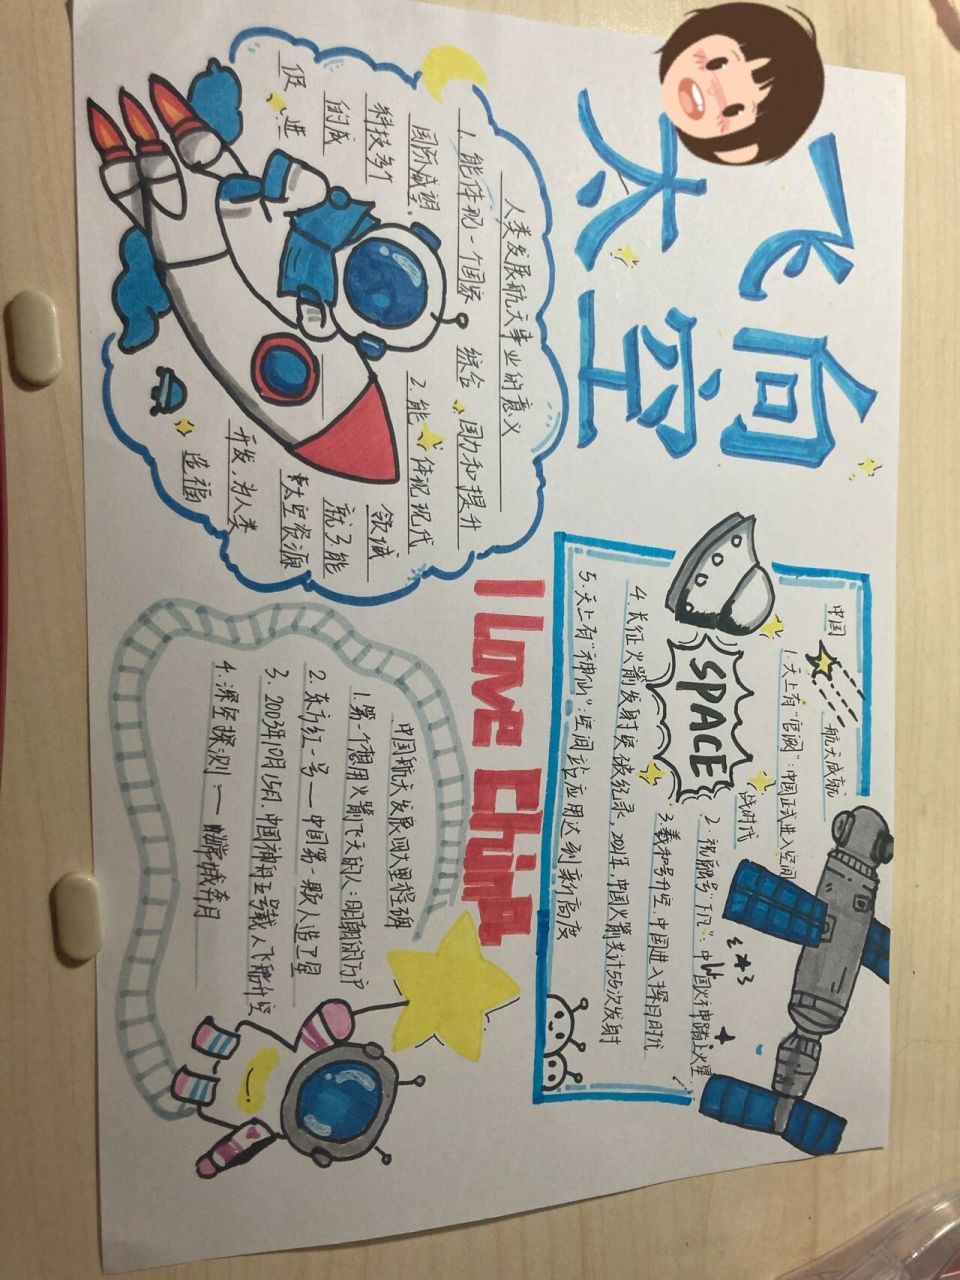 飞向
太空
人类发展航天事业的意义
1.能体现一个国家 综合 国力和提升
国际威望。 2.能 体现现代
科技多个 领域
的成 就 3.能
促进 太空资源
开发,为人类
造福
I Love China
中国 航天成就
1.天上有"官阙":中国正式进入空间
站时代
2.祝融号"下凡":中国火神踏上火星
SPACE
3.羲和号升空,中国进入探日时代
4.长征火箭发射
5.天上有"神仙":空间站应用达到新高度
中国航天发展四大里程碑
1.第一个想用火箭飞天的人:明朝的万户
2.东方红一号——中国第一颗人造卫星
3.2003年10月15日,中国神舟五号载人飞船升空
4.深空探测——嫦娥奔月